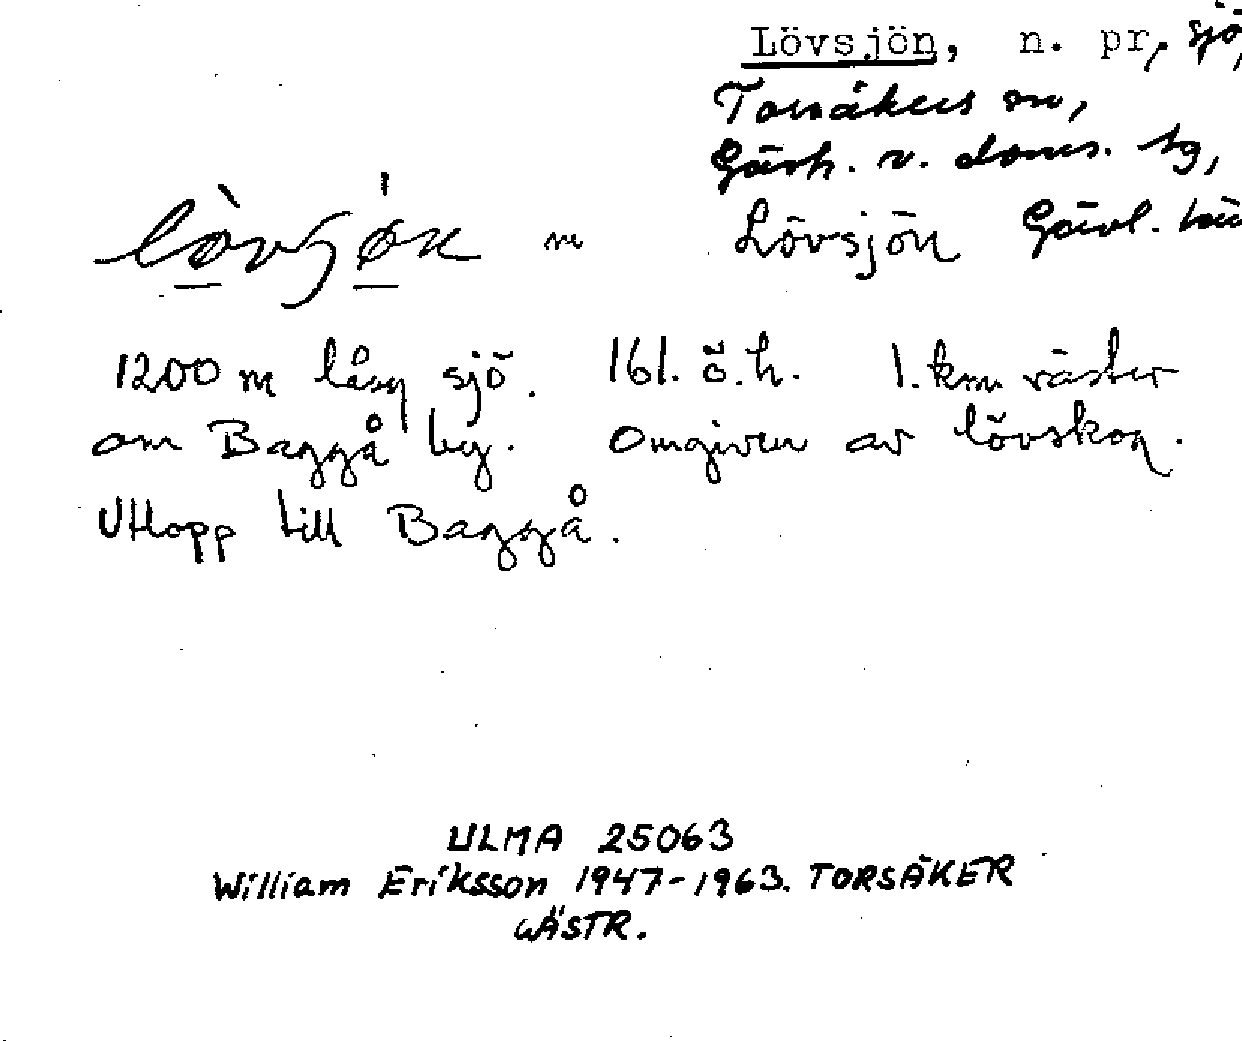 Lövsjön, n. pr, sjö,
Torsåkers sn,
Gästr. v. doms. tg,
Gävl. län
lövsjön m Lövsjön
1200 m lång sjö. 161. ö.h. 1.km väster
om Baggå by. Omgiven av lövskog.
Utlopp till Baggå.
ULMA 25063
William Eriksson 1947-1963. TORSÅKER
GÄSTR.